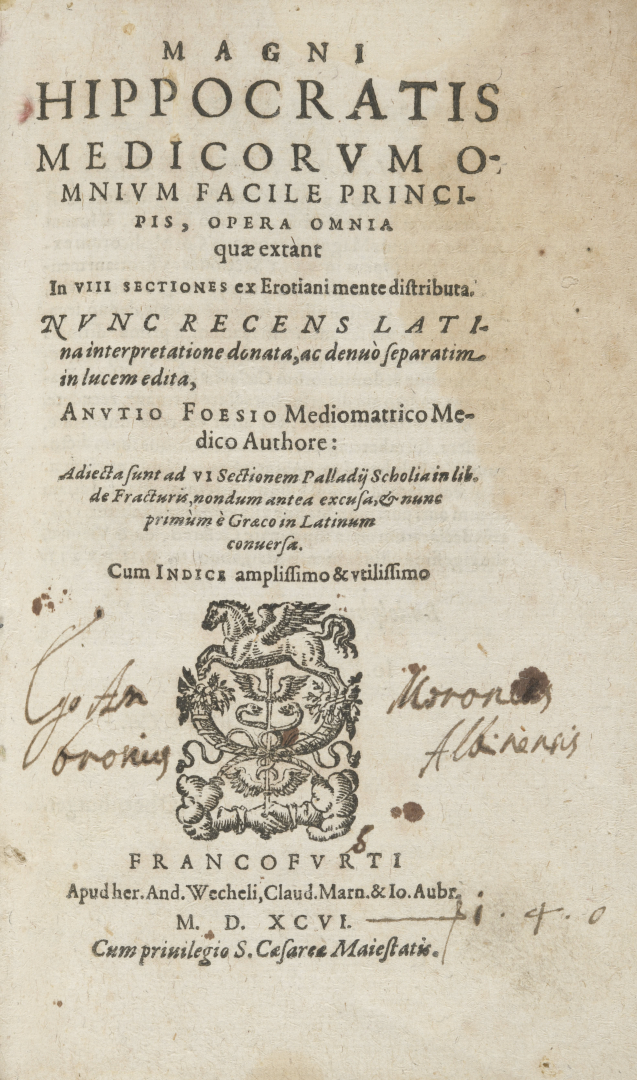 MAGNI
HIPPOCRATIS
MEDICORVM O-
MNIVM FACILE PRINCI-
PIS, OPERA OMNIA
quæ extant
In VIII SECTIONES ex Erotiani mente distributa.
NVNC RECENS LATI-
na interpretatione donata, ac denuò separatim
in lucem edita,
ANVTIO FOESIO Mediomatrico Me-
dico Authore:
Adiecta sunt ad VI Sectionem Palladij Scholia in lib.
de Fracturis, nondum antea excusa, & nunc
primùm è Græco in Latinum
conuersa.
Cum INDICE amplissimo & vtilissimo
Am
bronius
Moronus
Albinensis
FRANCOFVRTI
Apud her. And. Wecheli, Claud. Marn. & Io. Aubr.
M. D. XCVI.
1 · 4 · 0
Cum priuilegio S. Cæsareæ Maiestatis.